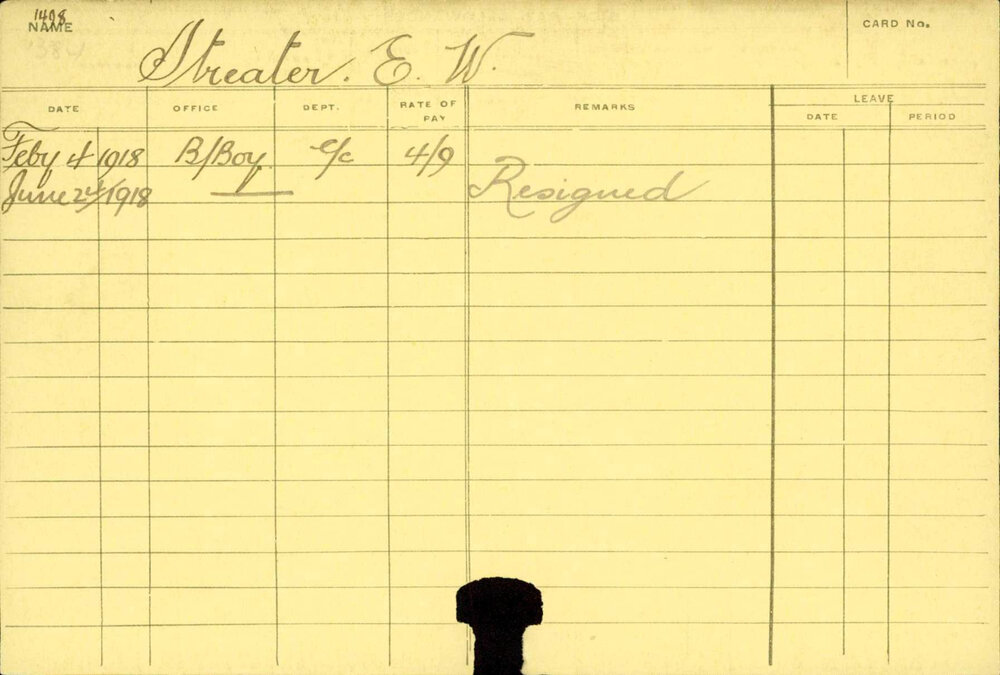 1408
NAME
Streater. E. W.
CARD No.
DATE OFFICE DEPT. RATE OF PAY REMARKS LEAVE
DATE PERIOD
Feby 4 1918 B/Boy. C/c 4/9
June 24/1918 Resigned